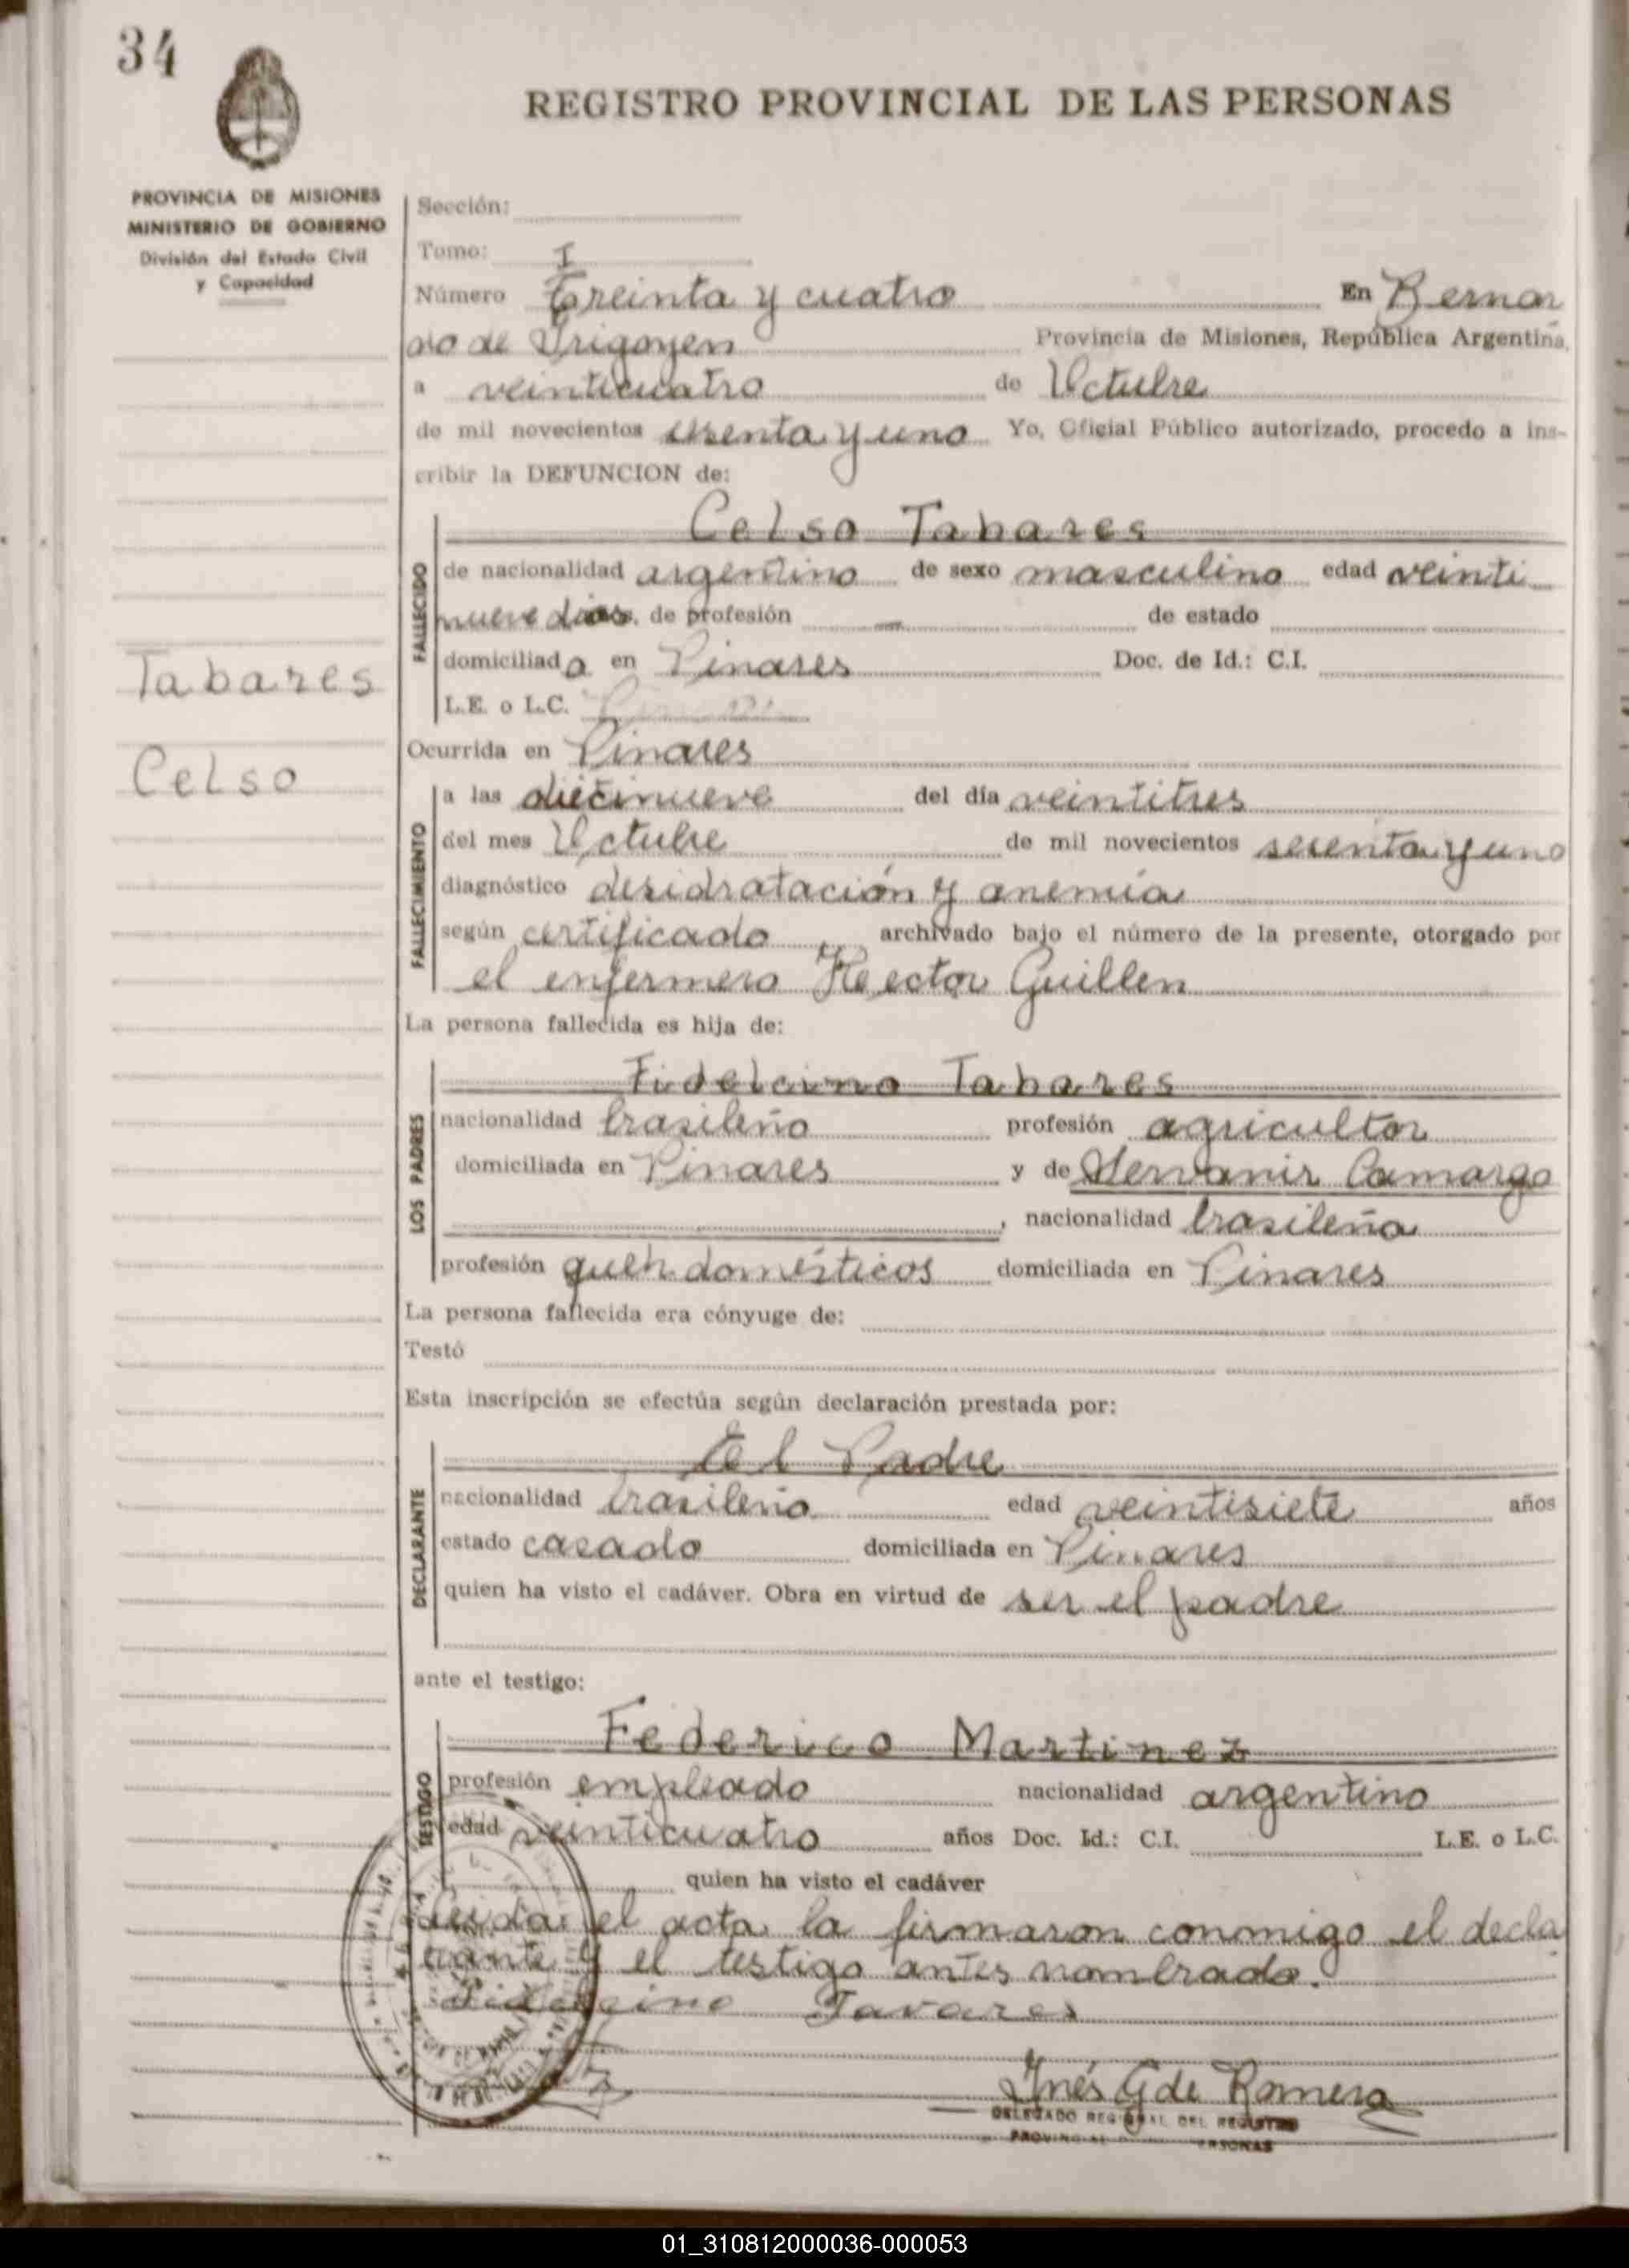 34
REGISTRO PROVINCIAL DE LAS PERSONAS
PROVINCIA DE MISIONES
MINISTERIO DE GOBIERNO
División del Estado Civil
y Capacidad
Tabares
Celso
Sección:
Tomo: I
Número Treinta y cuatro En Bernar
do de Irigoyen Provincia de Misiones, República Argentina,
a veinticuatro de Octubre
de mil novecientos sesenta y uno Yo, Oficial Público autorizado, procedo a ins-
cribir la DEFUNCION de:
Celso Tabares
FALLECIDO
de nacionalidad argentino de sexo masculino edad veinti
nueve dias, de profesión — de estado
domiciliado en Pinares Doc. de Id.: C.I.
L.E. o L.C.
Ocurrida en Pinares
FALLECIMIENTO
a las diecinueve del día veintitres
del mes Octubre de mil novecientos sesenta y uno
diagnóstico desidratación y anemia
según certificado archivado bajo el número de la presente, otorgado por
el enfermero Hector Guillen
La persona fallecida es hija de:
LOS PADRES
Fidelcino Tabares
nacionalidad brasileño profesión agricultor
domiciliada en Pinares y de Servanir Camargo
, nacionalidad brasileña
profesión queh. domésticos domiciliada en Pinares
La persona fallecida era cónyuge de:
Testó
Esta inscripción se efectúa según declaración prestada por:
DECLARANTE
El Padre
nacionalidad brasileño edad veintisiete años
estado casado domiciliada en Pinares
quien ha visto el cadáver. Obra en virtud de ser el padre
ante el testigo:
TESTIGO
Federico Martinez
profesión empleado nacionalidad argentino
edad veinticuatro años Doc. Id.: C.I. L.E. o L.C.
quien ha visto el cadáver
Leida el acta la firmaron conmigo el decla
rante y el testigo antes nombrado.
Fidelcino Tavares
Inés G de Romero
DELEGADO REGIONAL DEL REGISTRO
PROVINCIAL PERSONAS
01_310812000036-000053